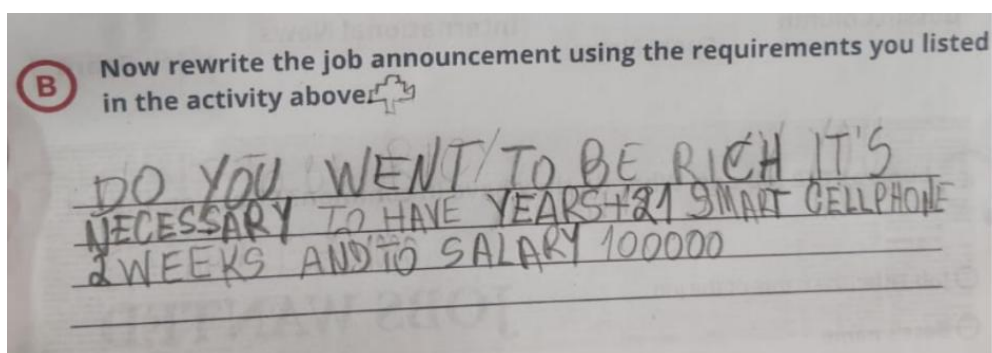 B
Now rewrite the job announcement using the requirements you listed
in the activity above.
DO YOU WENT TO BE RICH IT'S
NECESSARY TO HAVE YEARS +21 SMART CELLPHONE
2 WEEKS AND TO SALARY 100000